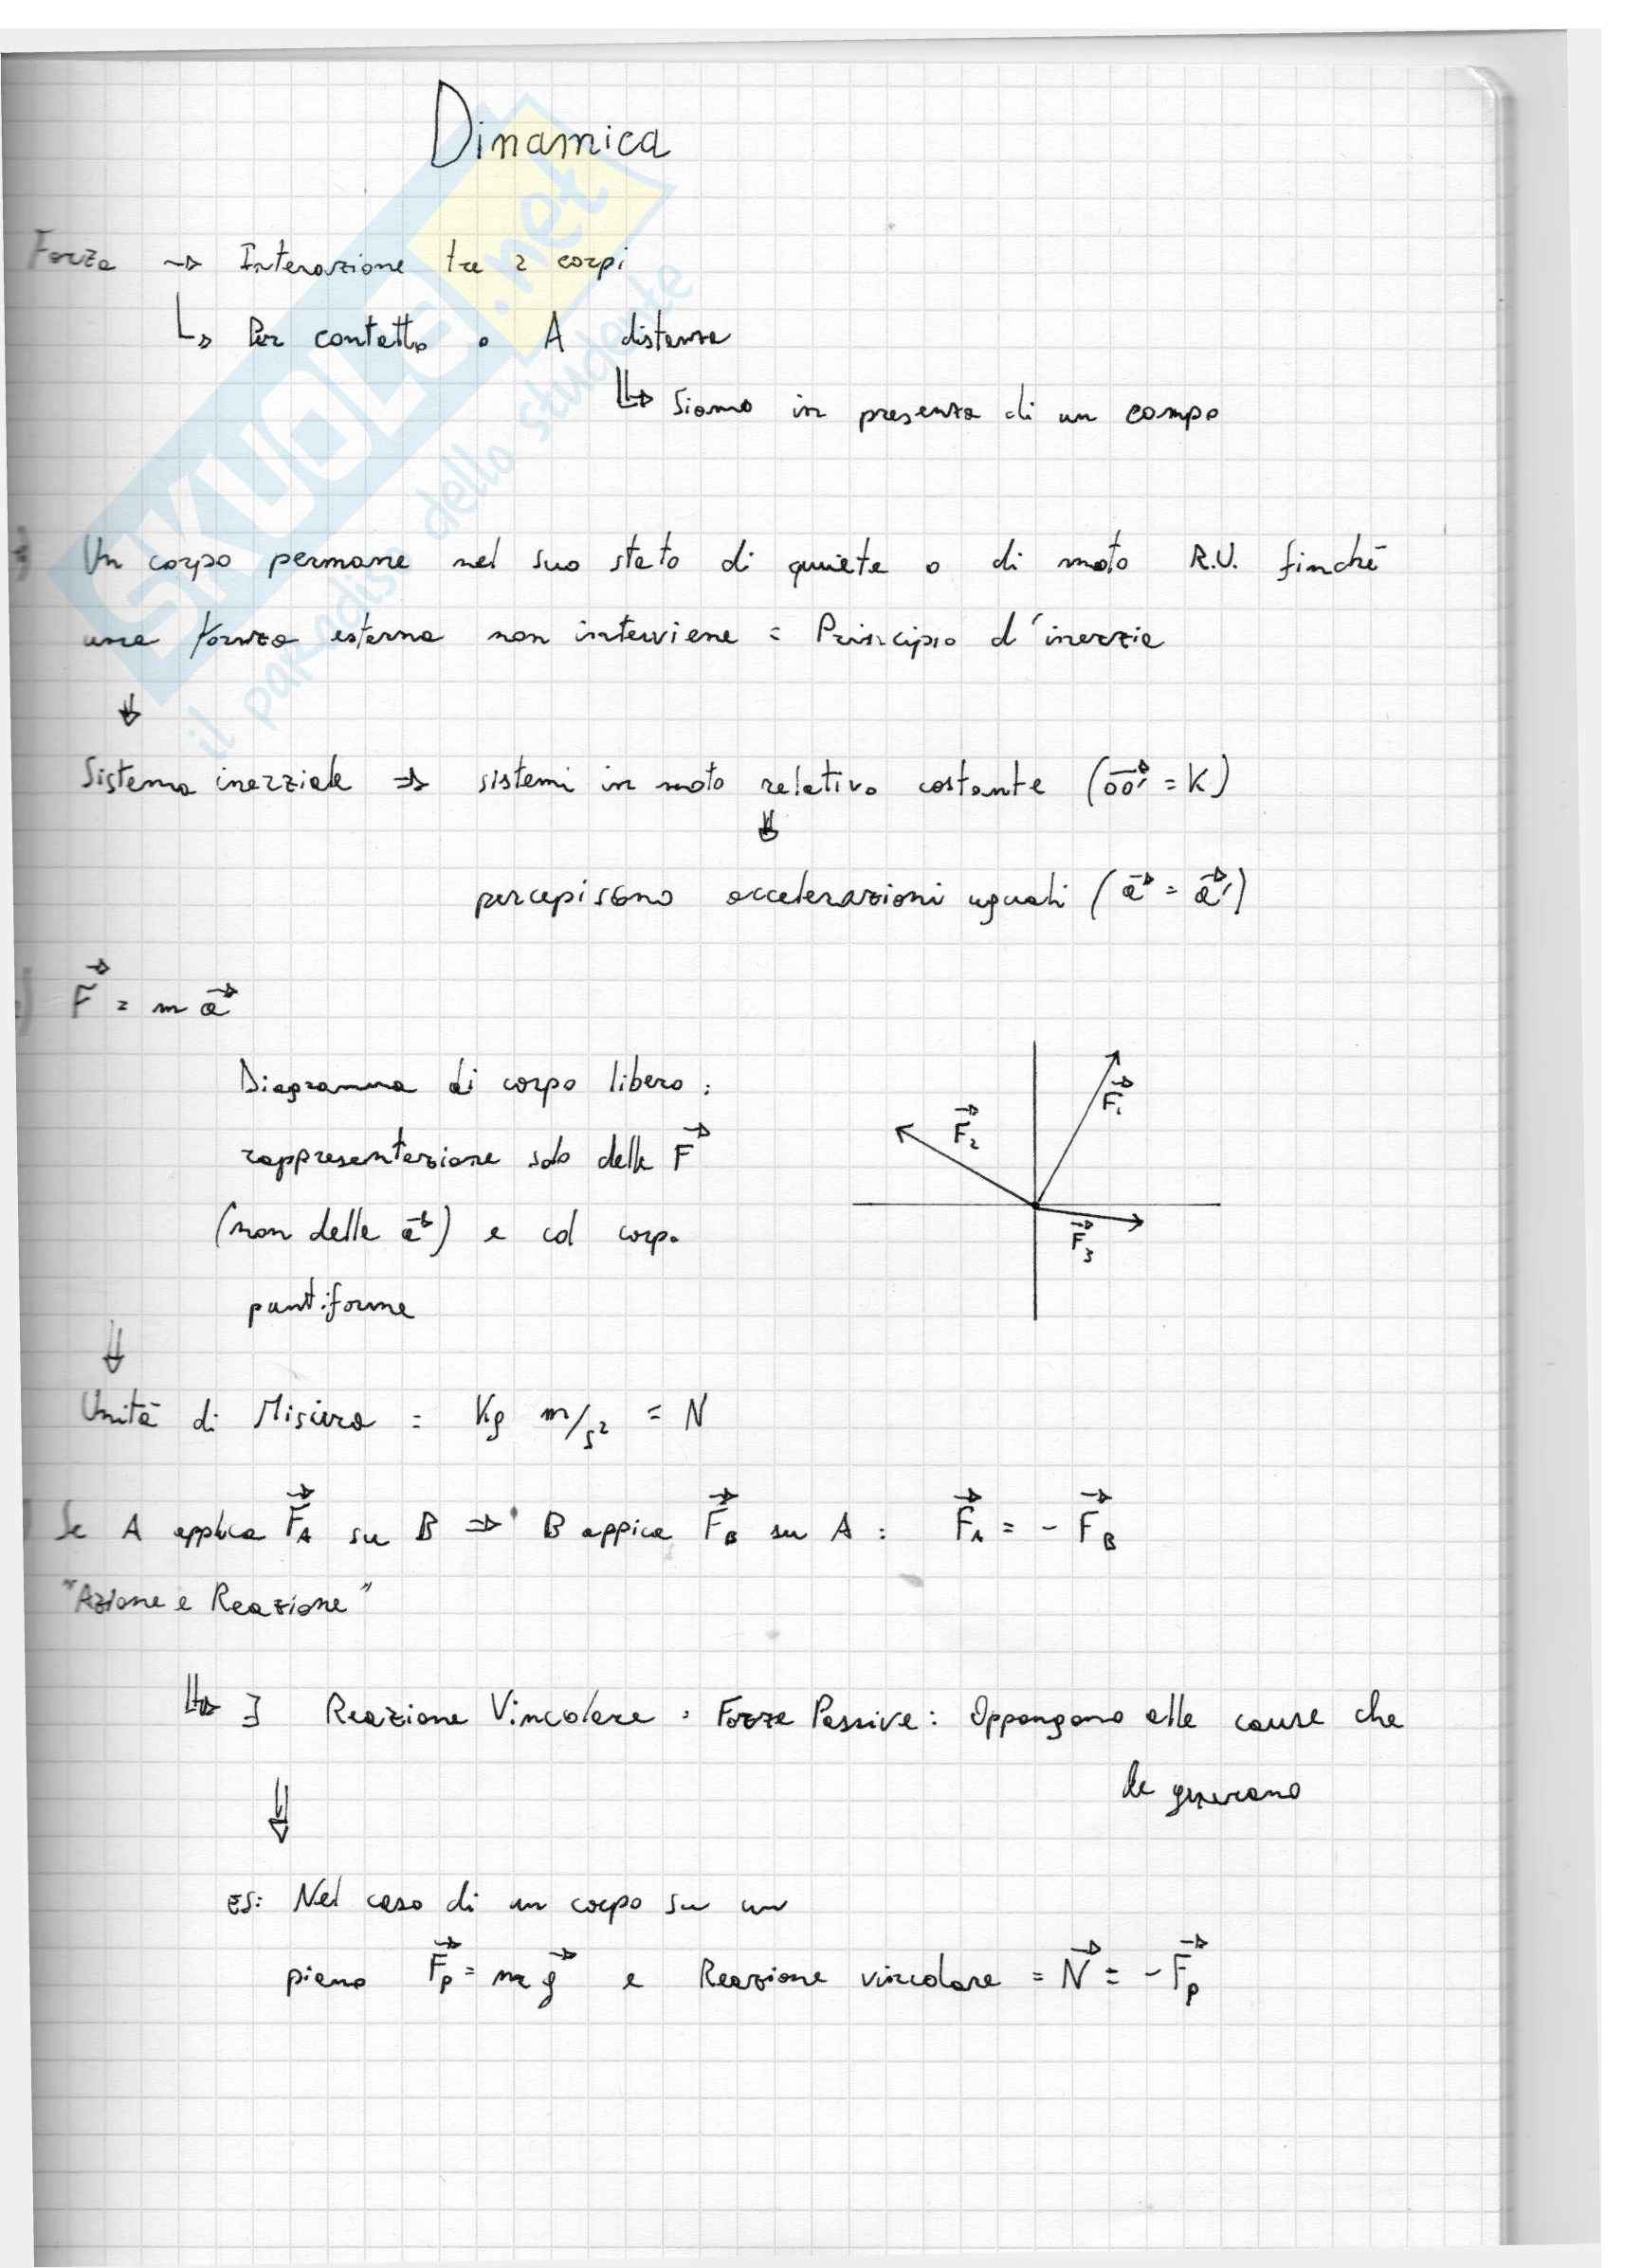 Dinamica
Forza → Interazione tra 2 corpi
↳ Per contatto o A distanza
↳ Siamo in presenza di un campo
Un corpo permane nel suo stato di quiete o di moto R.U. finché
una forza esterna non interviene = Principio d'inerzia
⇓
Sistema inerziale ⇒ sistemi in moto relativo costante (OO'⃗ = K)
⇓
percepiscono accelerazioni uguali (a⃗ = a⃗')
) F⃗ = m a⃗
Diagramma di corpo libero:
rappresentazione solo delle F⃗
(non delle a⃗) e col corpo
puntiforme
F⃗₁
F⃗₂
F⃗₃
⇓
Unità di Misura = Kg m/s² = N
Se A applica F⃗_A su B ⇒ B appica F⃗_B su A : F⃗_A = - F⃗_B
"Azione e Reazione"
↳ ∃ Reazione Vincolare : Forze Passive : Oppongono alle cause che
le generano
⇓
ES: Nel caso di un corpo su un
piano F⃗_p = m g⃗ e Reazione vincolare = N⃗ = - F⃗_p
SKUOLA.net
il paradiso dello studente